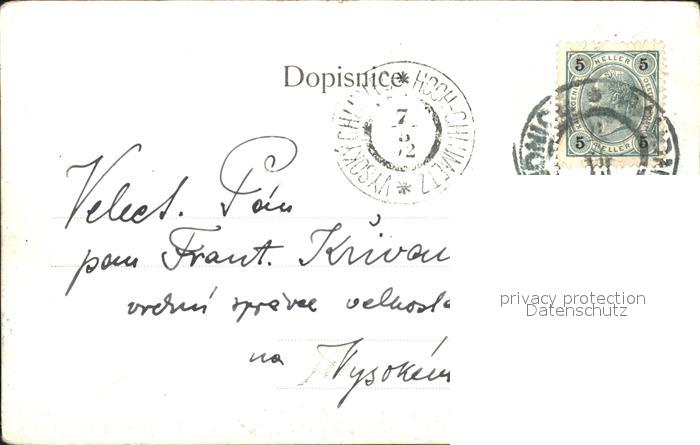 Dopisnice
VYSOKÝ CHLUMEC * HOCH-CHLUMETZ *
7
5
02
5 HELLER 5
5 HELLER 5
Velect. Pán
pan Frant. Křivan
vrchní správce velkosta
na Vysokém
privacy protection
Datenschutz